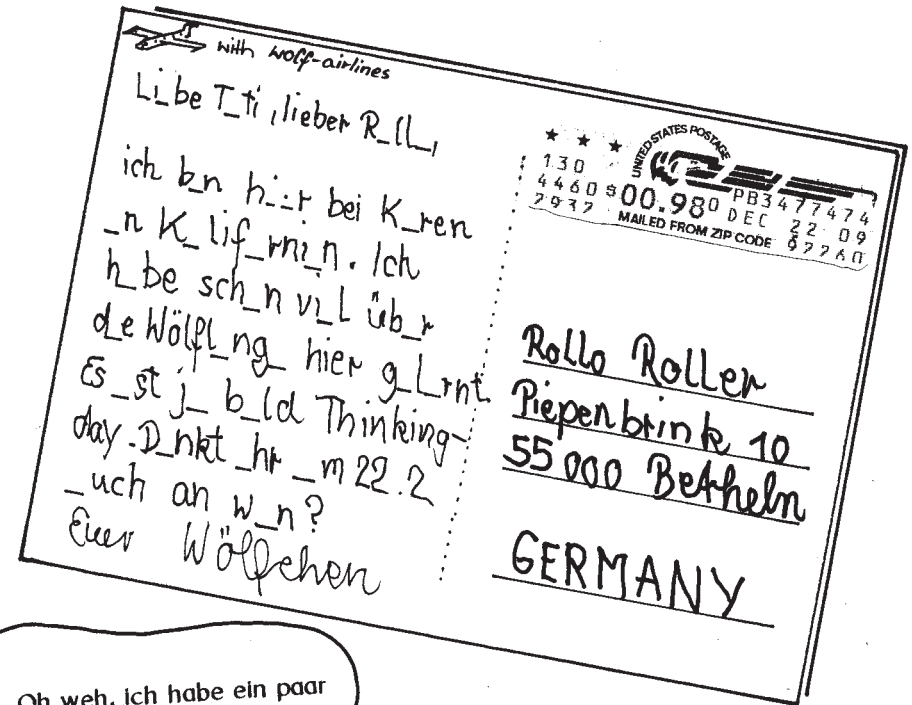 with wolff-airlines
Li_be T_ti, lieber R_ll_,
ich b_n h__r bei K_ren
_n K_lif_rni_n. Ich
h_be sch_n vi_l üb_r
d_e Wölfl_ng_ hier g_l_rnt.
Es _st j_ b_ld Thinking-
day. D_nkt _hr _m 22.2
_uch an w_n?
Euer Wölfchen
UNITED STATES POSTAGE
130
4460 $00.98⁰ PB3477474
2937 DEC 22 09
MAILED FROM ZIP CODE 97760
Rollo Roller
Piepenbrink 10
55000 Betheln
GERMANY
Oh weh, ich habe ein paar